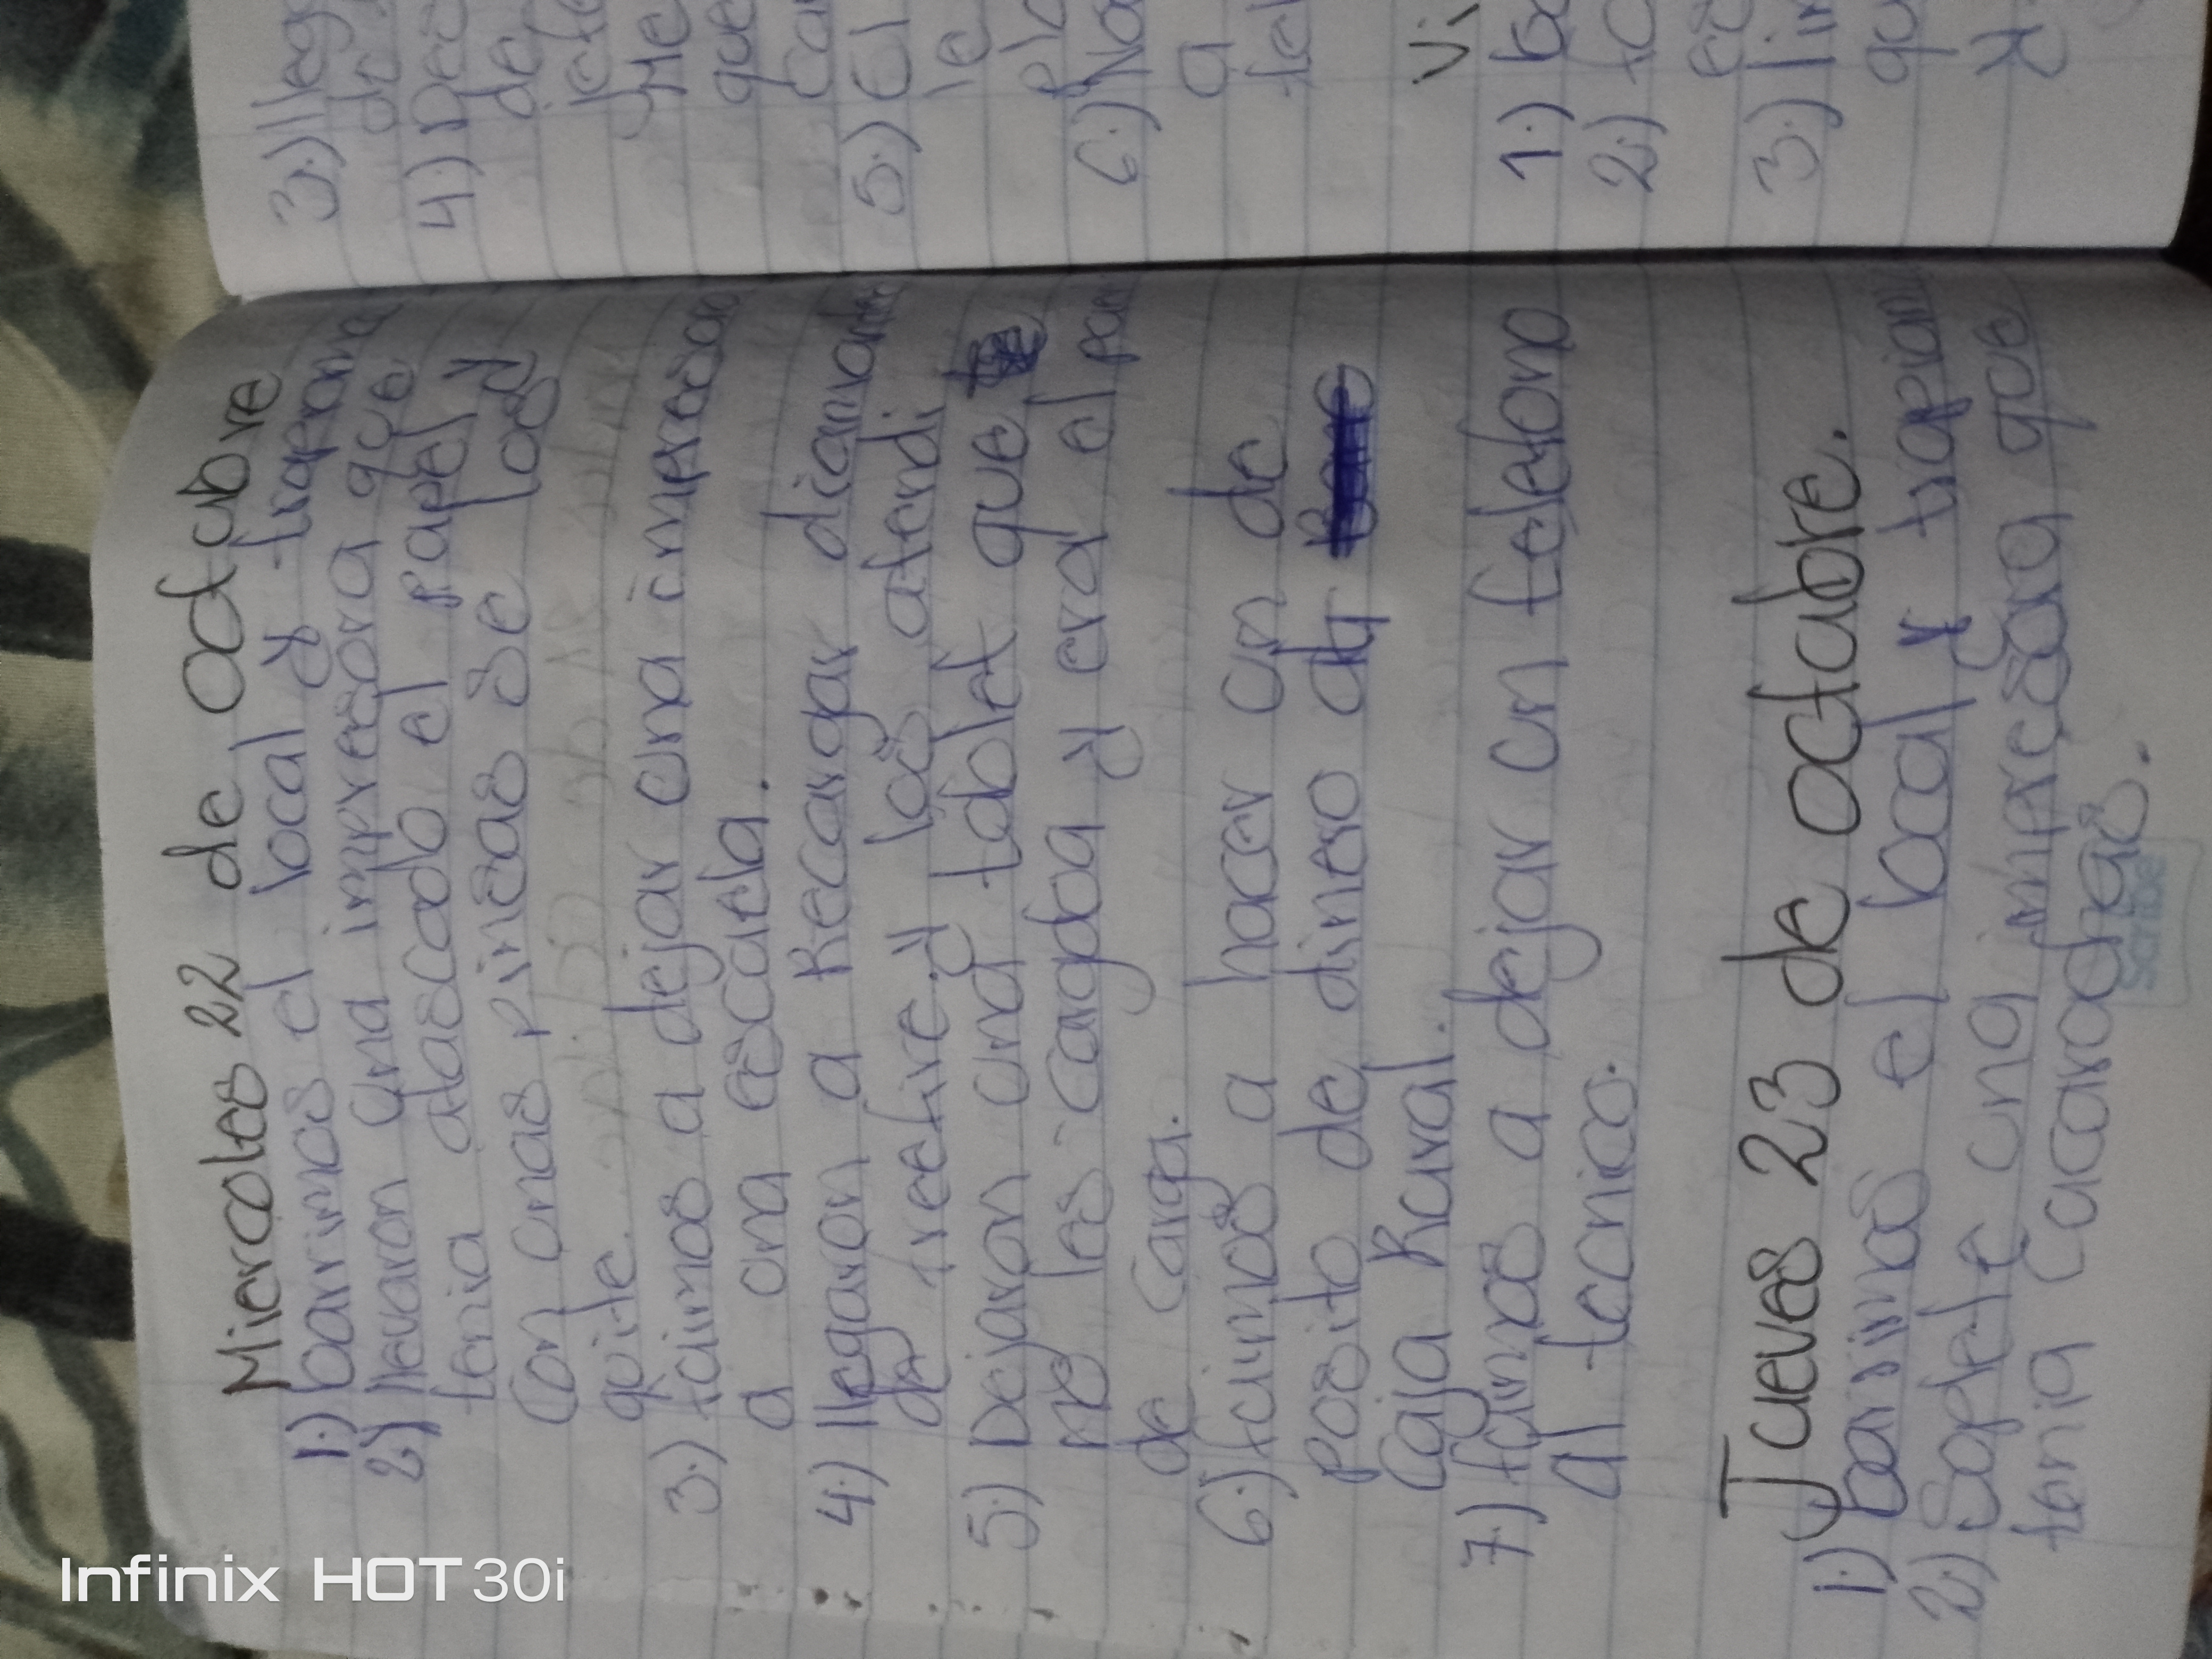 Miercoles 22 de octubre
1.) barrimos el local y trapeama
2.) llevaron una impresora que
tenia atascado el papel y
Con unas pinsas se los
quite.
3.) fuimos a dejar una impresora
a una escuela.
4.) llegaron a Recargar diamante
de freefire y los atendi
5.) Dejaron una tablet que
no les cargba y era el pan
de carga.
6.) fuimos a hacer un de
posito de dinero al
Caja Rural.
7.) fuimos a dejar un telefono
al tecnico.
Jueves 23 de octubre.
1.) barimos el local y trapiam
2.) Soplete una impresora que
tenia cucarachas.
scribe
3.) lleg
4.) De
de
5.) El
le
6.) No
a
tel
Vi
1.) ba
2.) fo
3.) lim
qu
y
Infinix HOT 30i